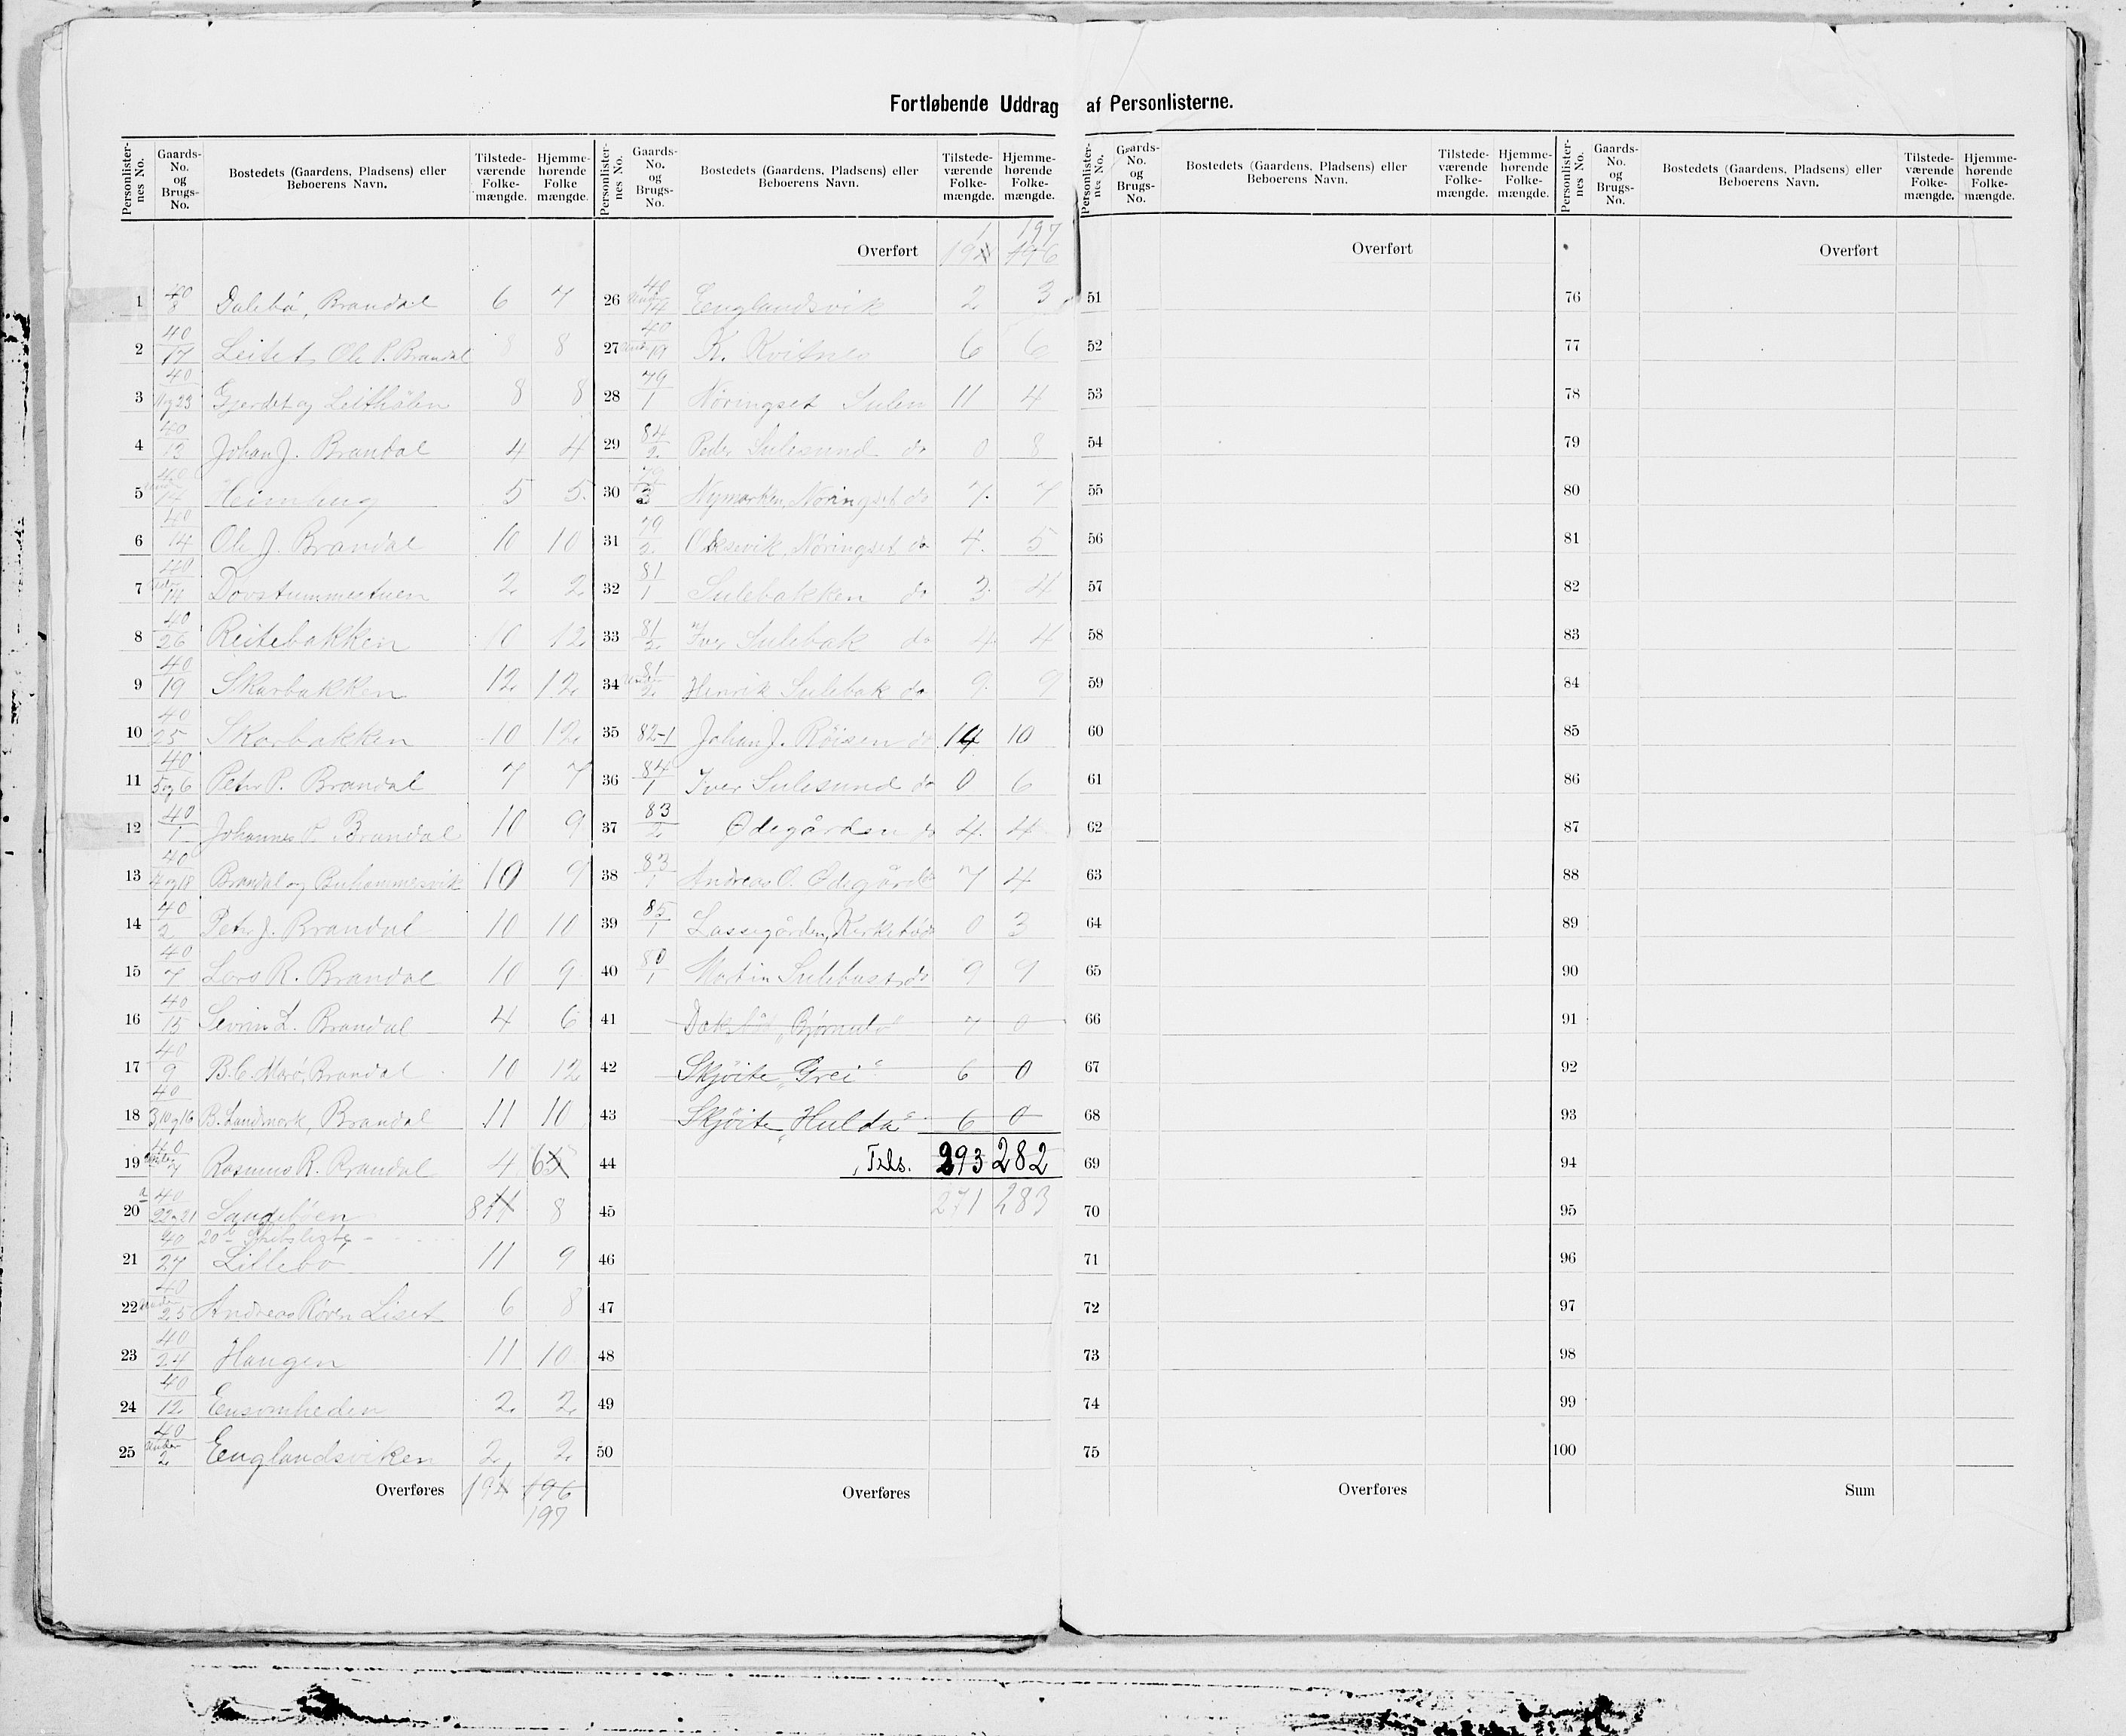 Fortløbende Uddrag af Personlisterne.
Personlister-nes No. | Gaards-No. og Brugs-No. | Bostedets (Gaardens, Pladsens) eller Beboerens Navn. | Tilstede-værende Folke-mængde. | Hjemme-hørende Folke mængde.
1 40/8 Dalebø, Brandal 6 7
2 40/17 Leitet, Ole P. Brandal 8 8
3 40/11og23 Gjerdet og Leithólen 8 8
4 40/13 Johan J. Brandal 4 4
5 40/under 14 Heimhug 5 5
6 40/14 Ole J. Brandal 10 10
7 40/und 14 Døvstummestuen 2 2
8 40/26 Reitebakken 10 12
9 40/19 Skarbakken 12 12
10 40/25 Skarbakken 10 12
11 40/5og6 Peter P. Brandal 7 7
12 40/1 Johannes P. Brandal 10 9
13 40/4og18 Brandal og Buhammesvik 10 9
14 40/2 Petr J. Brandal 10 10
15 40/7 Lars R. Brandal 10 9
16 40/15 Sevrin L. Brandal 4 6
17 40/9 B.C. Morø, Brandal 10 12
18 40/3,10og16 B. Landmark, Brandal 11 10
19 40/under 7 Rasmus R. Brandal 4 65
20 a 40/22og21 Sandebøen 8 11 8
20 b Skibsliste
21 40/27 Lillebø 11 9
22 40/under 25 Andreas Røren Liset 6 8
23 40/24 Haugen 11 10
24 40/12 Ensomheden 2 2
25 40/under 2 Eenglandsviken 2 2
Overføres 194 1 196
197
Personlister-nes No. | Gaards-No. og Brugs-No. | Bostedets (Gaardens, Pladsens) eller Beboerens Navn. | Tilstede-værende Folke-mængde. | Hjemme-hørende Folke-mængde.
1 197
Overført 194 196
26 40/under 14 Eenglandsvik 2 3
27 40/und 19 K. Kvitnes 6 6
28 79/1 Nøringset Sulen 11 4
29 84/2 Peder Sulesund do 0 8
30 79/3 Nymarken, Nøringset do 7 7
31 79/2 Oksevik, Nøringset do 4 5
32 81/1 Sulebakken do 3 4
33 81/2 Iver Sulebak do 4 4
34 81/under 2 Henrik Sulebak do 9 9
35 82-1 Johan J. Röisen do 14 10
36 84/1 Iver Sulesund do 0 6
37 83/2 Ödegården do 4 4
38 83/1 Andreas O. Ödegård do 7 4
39 85/1 Lassegården, Kirkebö do 0 3
40 80/1 Martin Sulebust do 9 9
41 Björnulv" 7 0
42 Skjöite „Grei" 6 0
43 Skjöite „Hulda" 6 0
44 Tils. 293 282
45 271 283
46
47
48
49
50
Overføres
Personlister-nes No. | Gaards-No. og Brugs-No. | Bostedets (Gaardens, Pladsens) eller Beboerens Navn. | Tilstede-værende Folke-mængde. | Hjemme-hørende Folke-mængde.
Overført
51
52
53
54
55
56
57
58
59
60
61
62
63
64
65
66
67
68
69
70
71
72
73
74
75
Overføres
Personlister-nes No. | Gaards-No. og Brugs-No. | Bostedets (Gaardens, Pladsens) eller Beboerens Navn. | Tilstede-værende Folke-mængde. | Hjemme-hørende Folke-mængde.
Overført
76
77
78
79
80
81
82
83
84
85
86
87
88
89
90
91
92
93
94
95
96
97
98
99
100
Sum